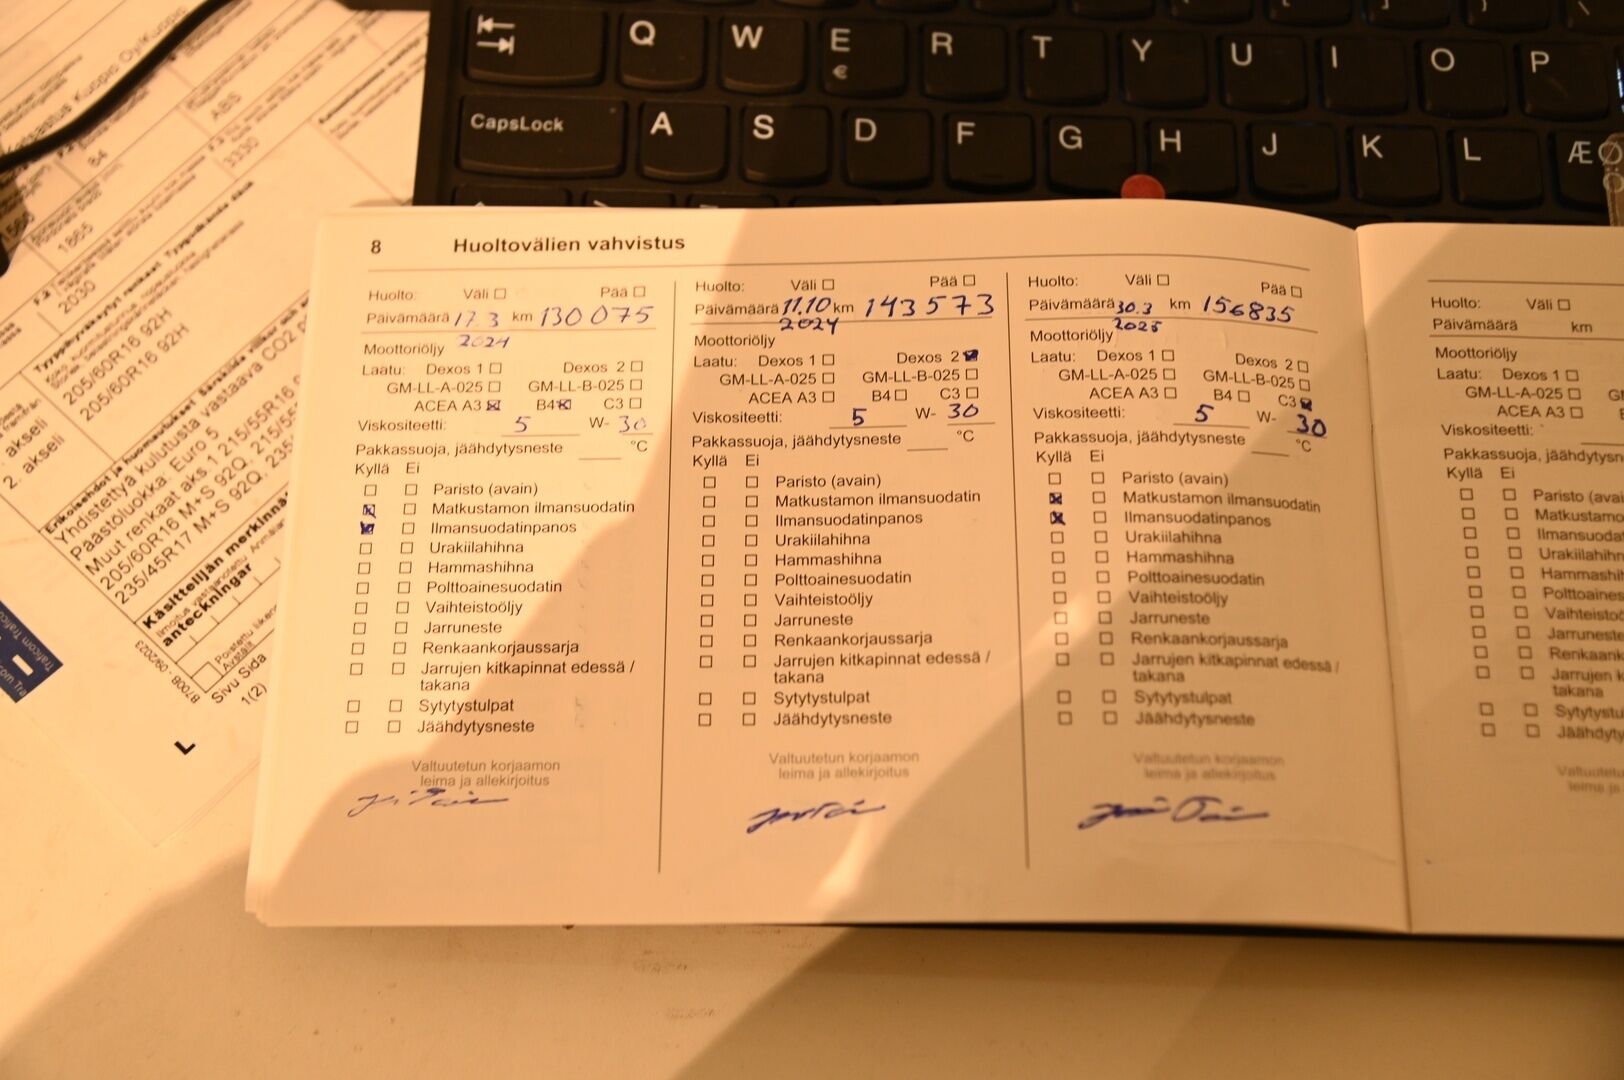 Q W E R T Y U I O P
€
CapsLock A S D F G H J K L Æ Ø
Kuopio Oy/Kuopio
AB5
84
3330
1865
2030
205/60R16 92H
205/60R16 92H
. akseli
2. akseli
Yhdistettyä kulutusta vastaava CO2
Päästöluokka: Euro 5
Muut renkaat aks.1 215/55R16
205/60R16 M+S 92Q. 215/55
235/45R17 M+S 92Q. 235
Käsittelijän merkinnä
anteckningar
8700B 09/2023
Sivu Sida
1(2)
Traficom Trafi
L
8 Huoltovälien vahvistus
Huolto: Väli ☐ Pää ☐
Päivämäärä 17.3 km 130 075
2024
Moottoriöljy
Laatu: Dexos 1 ☐ Dexos 2 ☐
GM-LL-A-025 ☐ GM-LL-B-025 ☐
ACEA A3 ☒ B4 ☒ C3 ☐
Viskositeetti: 5 W- 30
Pakkassuoja, jäähdytysneste ____ °C
Kyllä Ei
☐ ☐ Paristo (avain)
☒ ☐ Matkustamon ilmansuodatin
☒ ☐ Ilmansuodatinpanos
☐ ☐ Urakiilahihna
☐ ☐ Hammashihna
☐ ☐ Polttoainesuodatin
☐ ☐ Vaihteistoöljy
☐ ☐ Jarruneste
☐ ☐ Renkaankorjaussarja
☐ ☐ Jarrujen kitkapinnat edessä /
takana
☐ ☐ Sytytystulpat
☐ ☐ Jäähdytysneste
Valtuutetun korjaamon
leima ja allekirjoitus
Huolto: Väli ☐ Pää ☐
Päivämäärä 11.10 km 143573
2024
Moottoriöljy
Laatu: Dexos 1 ☐ Dexos 2 ☒
GM-LL-A-025 ☐ GM-LL-B-025 ☐
ACEA A3 ☐ B4 ☐ C3 ☐
Viskositeetti: 5 W- 30
Pakkassuoja, jäähdytysneste ____ °C
Kyllä Ei
☐ ☐ Paristo (avain)
☐ ☐ Matkustamon ilmansuodatin
☐ ☐ Ilmansuodatinpanos
☐ ☐ Urakiilahihna
☐ ☐ Hammashihna
☐ ☐ Polttoainesuodatin
☐ ☐ Vaihteistoöljy
☐ ☐ Jarruneste
☐ ☐ Renkaankorjaussarja
☐ ☐ Jarrujen kitkapinnat edessä /
takana
☐ ☐ Sytytystulpat
☐ ☐ Jäähdytysneste
Valtuutetun korjaamon
leima ja allekirjoitus
Huolto: Väli ☐ Pää ☐
Päivämäärä 30.3 km 156835
2025
Moottoriöljy
Laatu: Dexos 1 ☐ Dexos 2 ☐
GM-LL-A-025 ☐ GM-LL-B-025 ☐
ACEA A3 ☐ B4 ☐ C3 ☒
Viskositeetti: 5 W- 30
Pakkassuoja, jäähdytysneste ____ °C
Kyllä Ei
☐ ☐ Paristo (avain)
☒ ☐ Matkustamon ilmansuodatin
☒ ☐ Ilmansuodatinpanos
☐ ☐ Urakiilahihna
☐ ☐ Hammashihna
☐ ☐ Polttoainesuodatin
☐ ☐ Vaihteistoöljy
☐ ☐ Jarruneste
☐ ☐ Renkaankorjaussarja
☐ ☐ Jarrujen kitkapinnat edessä /
takana
☐ ☐ Sytytystulpat
☐ ☐ Jäähdytysneste
Valtuutetun korjaamon
leima ja allekirjoitus
Huolto: Väli ☐
Päivämäärä km
Moottoriöljy
Laatu: Dexos 1 ☐
GM-LL-A-025 ☐
ACEA A3 ☐
Viskositeetti:
Pakkassuoja, jäähdytysn
Kyllä Ei
☐ ☐ Paristo (avai
☐ ☐ Matkustamon
☐ ☐ Ilmansuodat
☐ ☐ Urakiilahihn
☐ ☐ Hammashi
☐ ☐ Polttoaines
☐ ☐ Vaihteistoö
☐ ☐ Jarruneste
☐ ☐ Renkaank
☐ ☐ Jarrujen k
takana
☐ ☐ Sytytystu
☐ ☐ Jäähdyty
Valtuutetu
leima ja